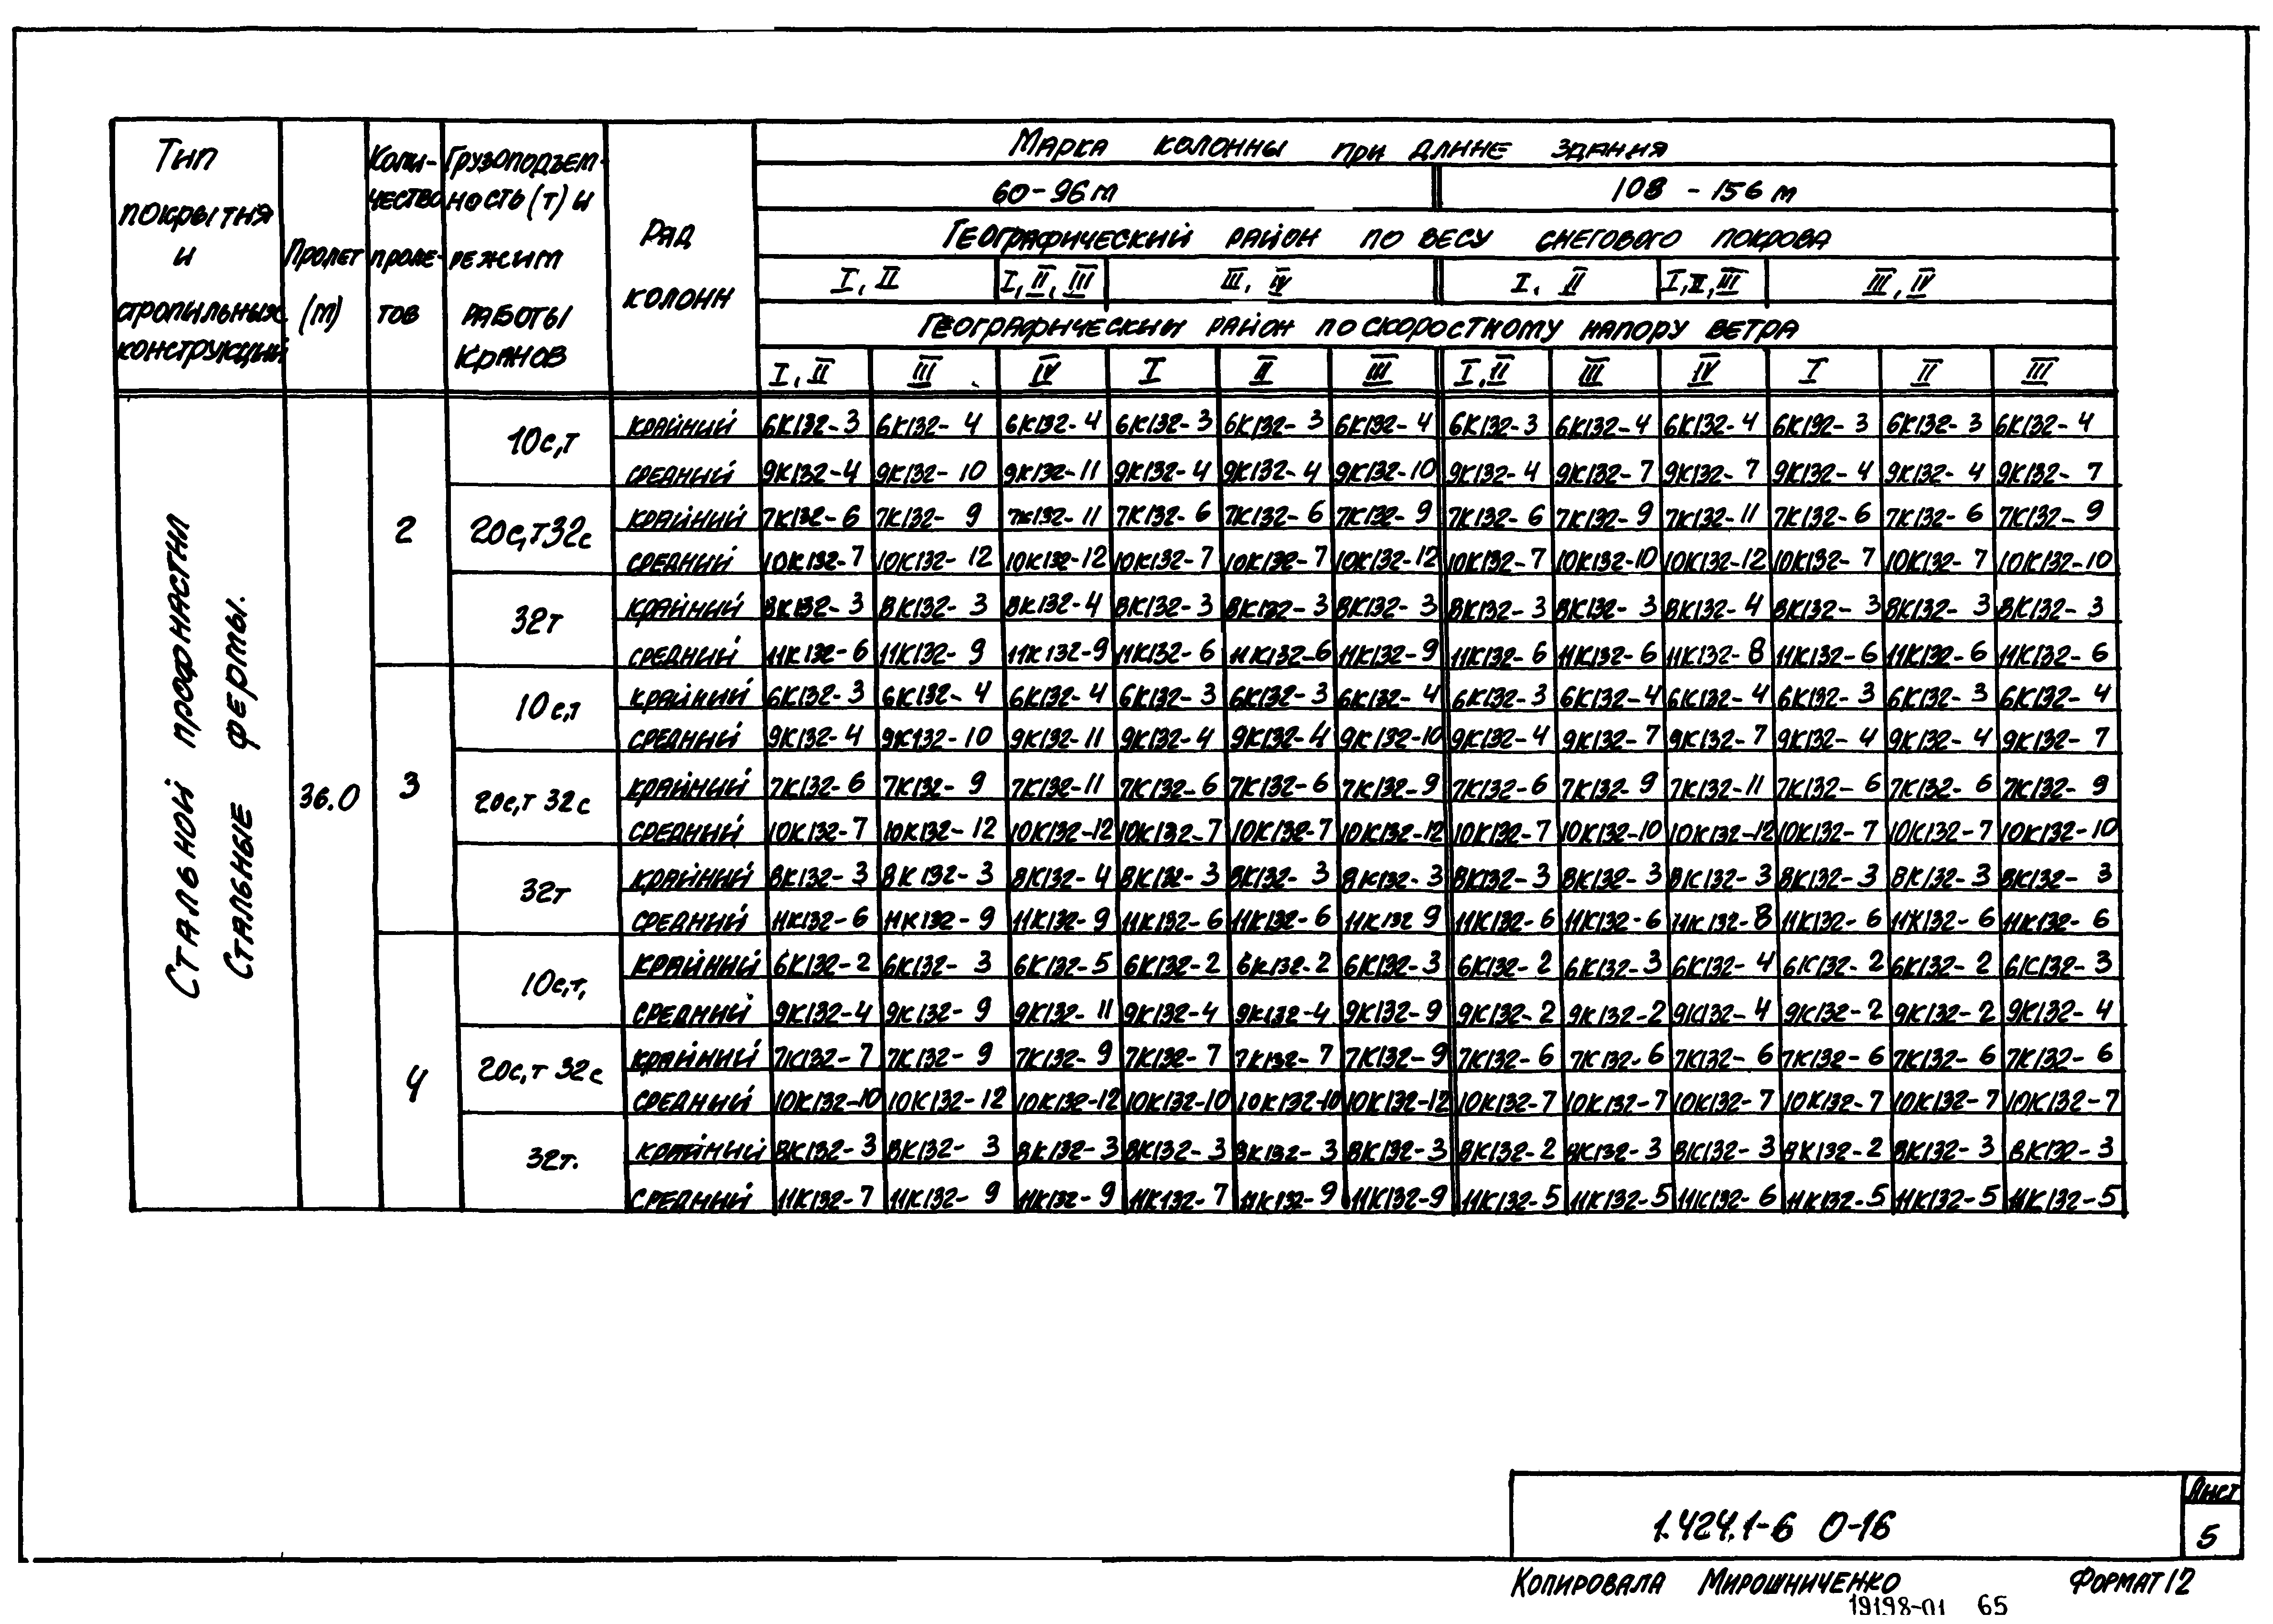 Марка колонны при длине здания
60-96м 108 - 156м
Географический район по весу снегового покрова
I, II I, II, III III, IV I, II I, II, III III, IV
Географический район по скоростному напору ветра
I, II III IV I II III I, II III IV I II III
Тип
покрытия
и
стропильных
конструкций
Пролет
(м)
Коли-
чество
проле-
тов
Грузоподъем-
ность (т) и
режим
работы
кранов
Ряд
колонн
Стальной профнастил
Стальные фермы.
36.0
2
10с,т
крайний 6К132-3 6К132-4 6К132-4 6К132-3 6К132-3 6К132-4 6К132-3 6К132-4 6К132-4 6К132-3 6К132-3 6К132-4
средний 9К132-4 9К132-10 9К132-11 9К132-4 9К132-4 9К132-10 9К132-4 9К132-7 9К132-7 9К132-4 9К132-4 9К132-7
20с,т 32с
крайний 7К132-6 7К132-9 7К132-11 7К132-6 7К132-6 7К132-9 7К132-6 7К132-9 7К132-11 7К132-6 7К132-6 7К132-9
средний 10К132-7 10К132-12 10К132-12 10К132-7 10К132-7 10К132-12 10К132-7 10К132-10 10К132-12 10К132-7 10К132-7 10К132-10
32т
крайний 8К132-3 8К132-3 8К132-4 8К132-3 8К132-3 8К132-3 8К132-3 8К132-3 8К132-4 8К132-3 8К132-3 8К132-3
средний 11К132-6 11К132-9 11К132-9 11К132-6 11К132-6 11К132-9 11К132-6 11К132-6 11К132-8 11К132-6 11К132-6 11К132-6
3
10с,т
крайний 6К132-3 6К132-4 6К132-4 6К132-3 6К132-3 6К132-4 6К132-3 6К132-4 6К132-4 6К132-3 6К132-3 6К132-4
средний 9К132-4 9К132-10 9К132-11 9К132-4 9К132-4 9К132-10 9К132-4 9К132-7 9К132-7 9К132-4 9К132-4 9К132-7
20с,т 32с
крайний 7К132-6 7К132-9 7К132-11 7К132-6 7К132-6 7К132-9 7К132-6 7К132-9 7К132-11 7К132-6 7К132-6 7К132-9
средний 10К132-7 10К132-12 10К132-12 10К132-7 10К132-7 10К132-12 10К132-7 10К132-10 10К132-12 10К132-7 10К132-7 10К132-10
32т
крайний 8К132-3 8К132-3 8К132-4 8К132-3 8К132-3 8К132-3 8К132-3 8К132-3 8К132-3 8К132-3 8К132-3 8К132-3
средний 11К132-6 11К132-9 11К132-9 11К132-6 11К132-6 11К132 9 11К132-6 11К132-6 11К132-8 11К132-6 11К132-6 11К132-6
4
10с,т,
крайний 6К132-2 6К132-3 6К132-5 6К132-2 6К132-2 6К132-3 6К132-2 6К132-3 6К132-4 6К132-2 6К132-2 6К132-3
средний 9К132-4 9К132-9 9К132-11 9К132-4 9К132-4 9К132-9 9К132-2 9К132-2 9К132-4 9К132-2 9К132-2 9К132-4
20с,т 32с
крайний 7К132-7 7К132-9 7К132-9 7К132-7 7К132-7 7К132-9 7К132-6 7К132-6 7К132-6 7К132-6 7К132-6 7К132-6
средний 10К132-10 10К132-12 10К132-12 10К132-10 10К132-10 10К132-12 10К132-7 10К132-7 10К132-7 10К132-7 10К132-7 10К132-7
32т.
крайний 8К132-3 8К132-3 8К132-3 8К132-3 8К132-3 8К132-3 8К132-2 8К132-3 8К132-3 8К132-2 8К132-3 8К132-3
средний 11К132-7 11К132-9 11К132-9 11К132-7 11К132-9 11К132-9 11К132-5 11К132-5 11К132-6 11К132-5 11К132-5 11К132-5
1.424.1-6 0-16
Лист
5
Копировала Мирошниченко Формат 12
19198-01 65